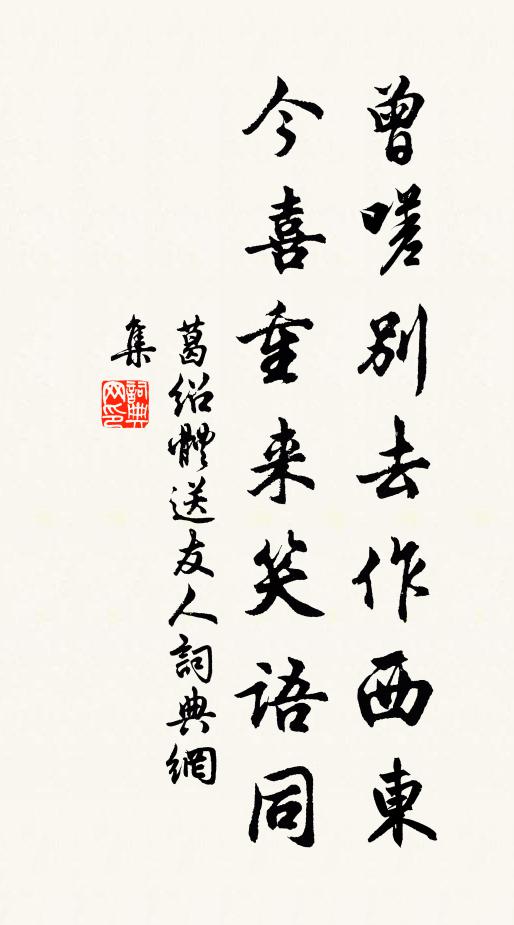 曾嗟別去作西東
今喜重来笑語同
葛紹體送友人詞典網
集
詞典網印